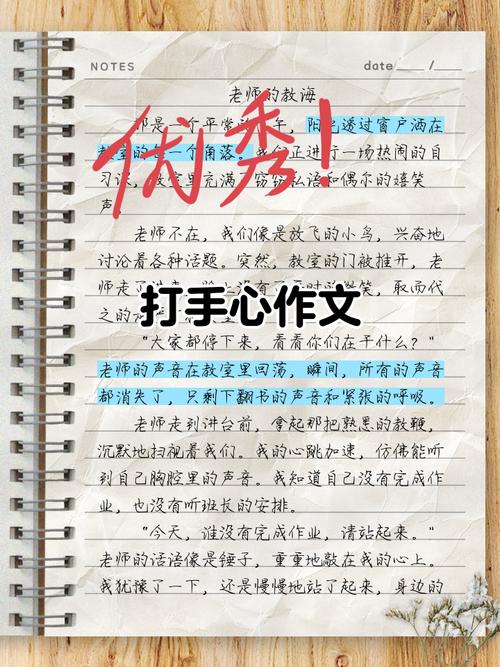 NOTES
date ___ / ___
老师的教海
那是一个平常的 午，阳光透过窗户洒在
教室的每一个角落。我们正进行一场热闹的自
习课，教室里充满 窃窃私语和偶尔的嬉笑
声
优秀！
老师不在，我们像是放飞的小鸟，兴奋地
讨论着各种话题。突然，教室的门被推开，老
师走了 笑，取而代
之的
打手心作文
“大家都停下来，看看你们在干什么？”
老师的声音在教室里回荡，瞬间，所有的声音
都消失了，只剩下翻书的声音和紧张的呼吸。
老师走到讲台前，拿起那把熟悉的教鞭，
沉默地扫视着我们。我的心跳加速，仿佛能听
到自己胸腔里的声音。我知道自己没有完成作
业，也没有听班长的安排。
“今天，谁没有完成作业，请站起来。”
老师的话语像是锤子，重重地敲在我的心上。
我犹豫了一下，还是慢慢地站了起来，身边的